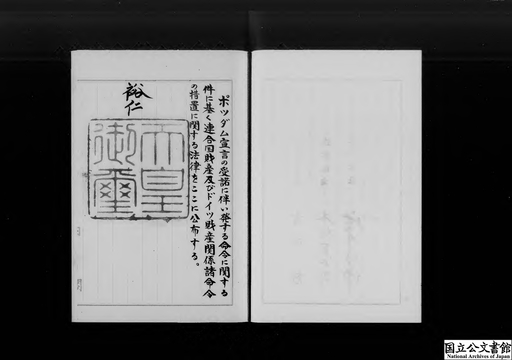 ポツダム宣言の受諾に伴い発する命令に関する
件に基く連合国財産及びドイツ財産関係諸命令
の措置に関する法律をここに公布する。
裕仁
天皇
御璽
国立公文書館
National Archives of Japan